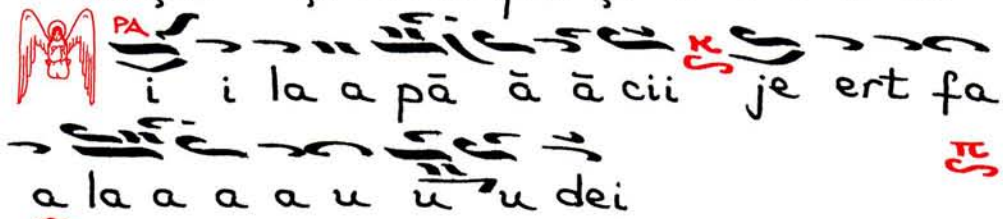 PA
i i la a pā ā ā cii ϰ je ert fa
a la a a a u u u dei π